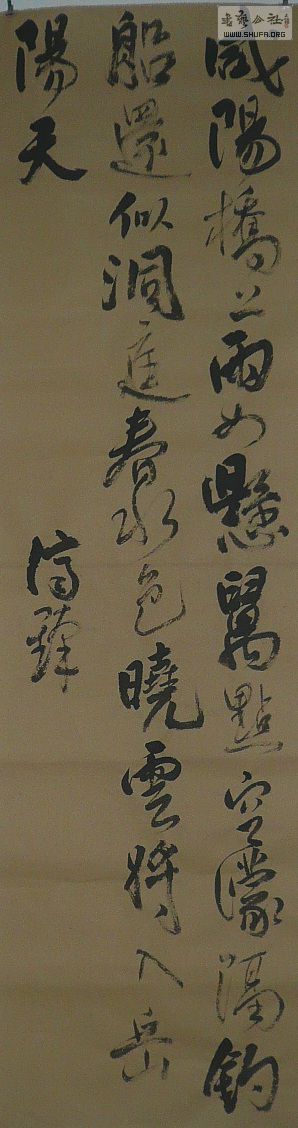 書藝公社
WWW.SHUFA.ORG
咸陽橋上雨如懸萬點空濛隔釣
船還似洞庭春水色曉雲將入岳
陽天